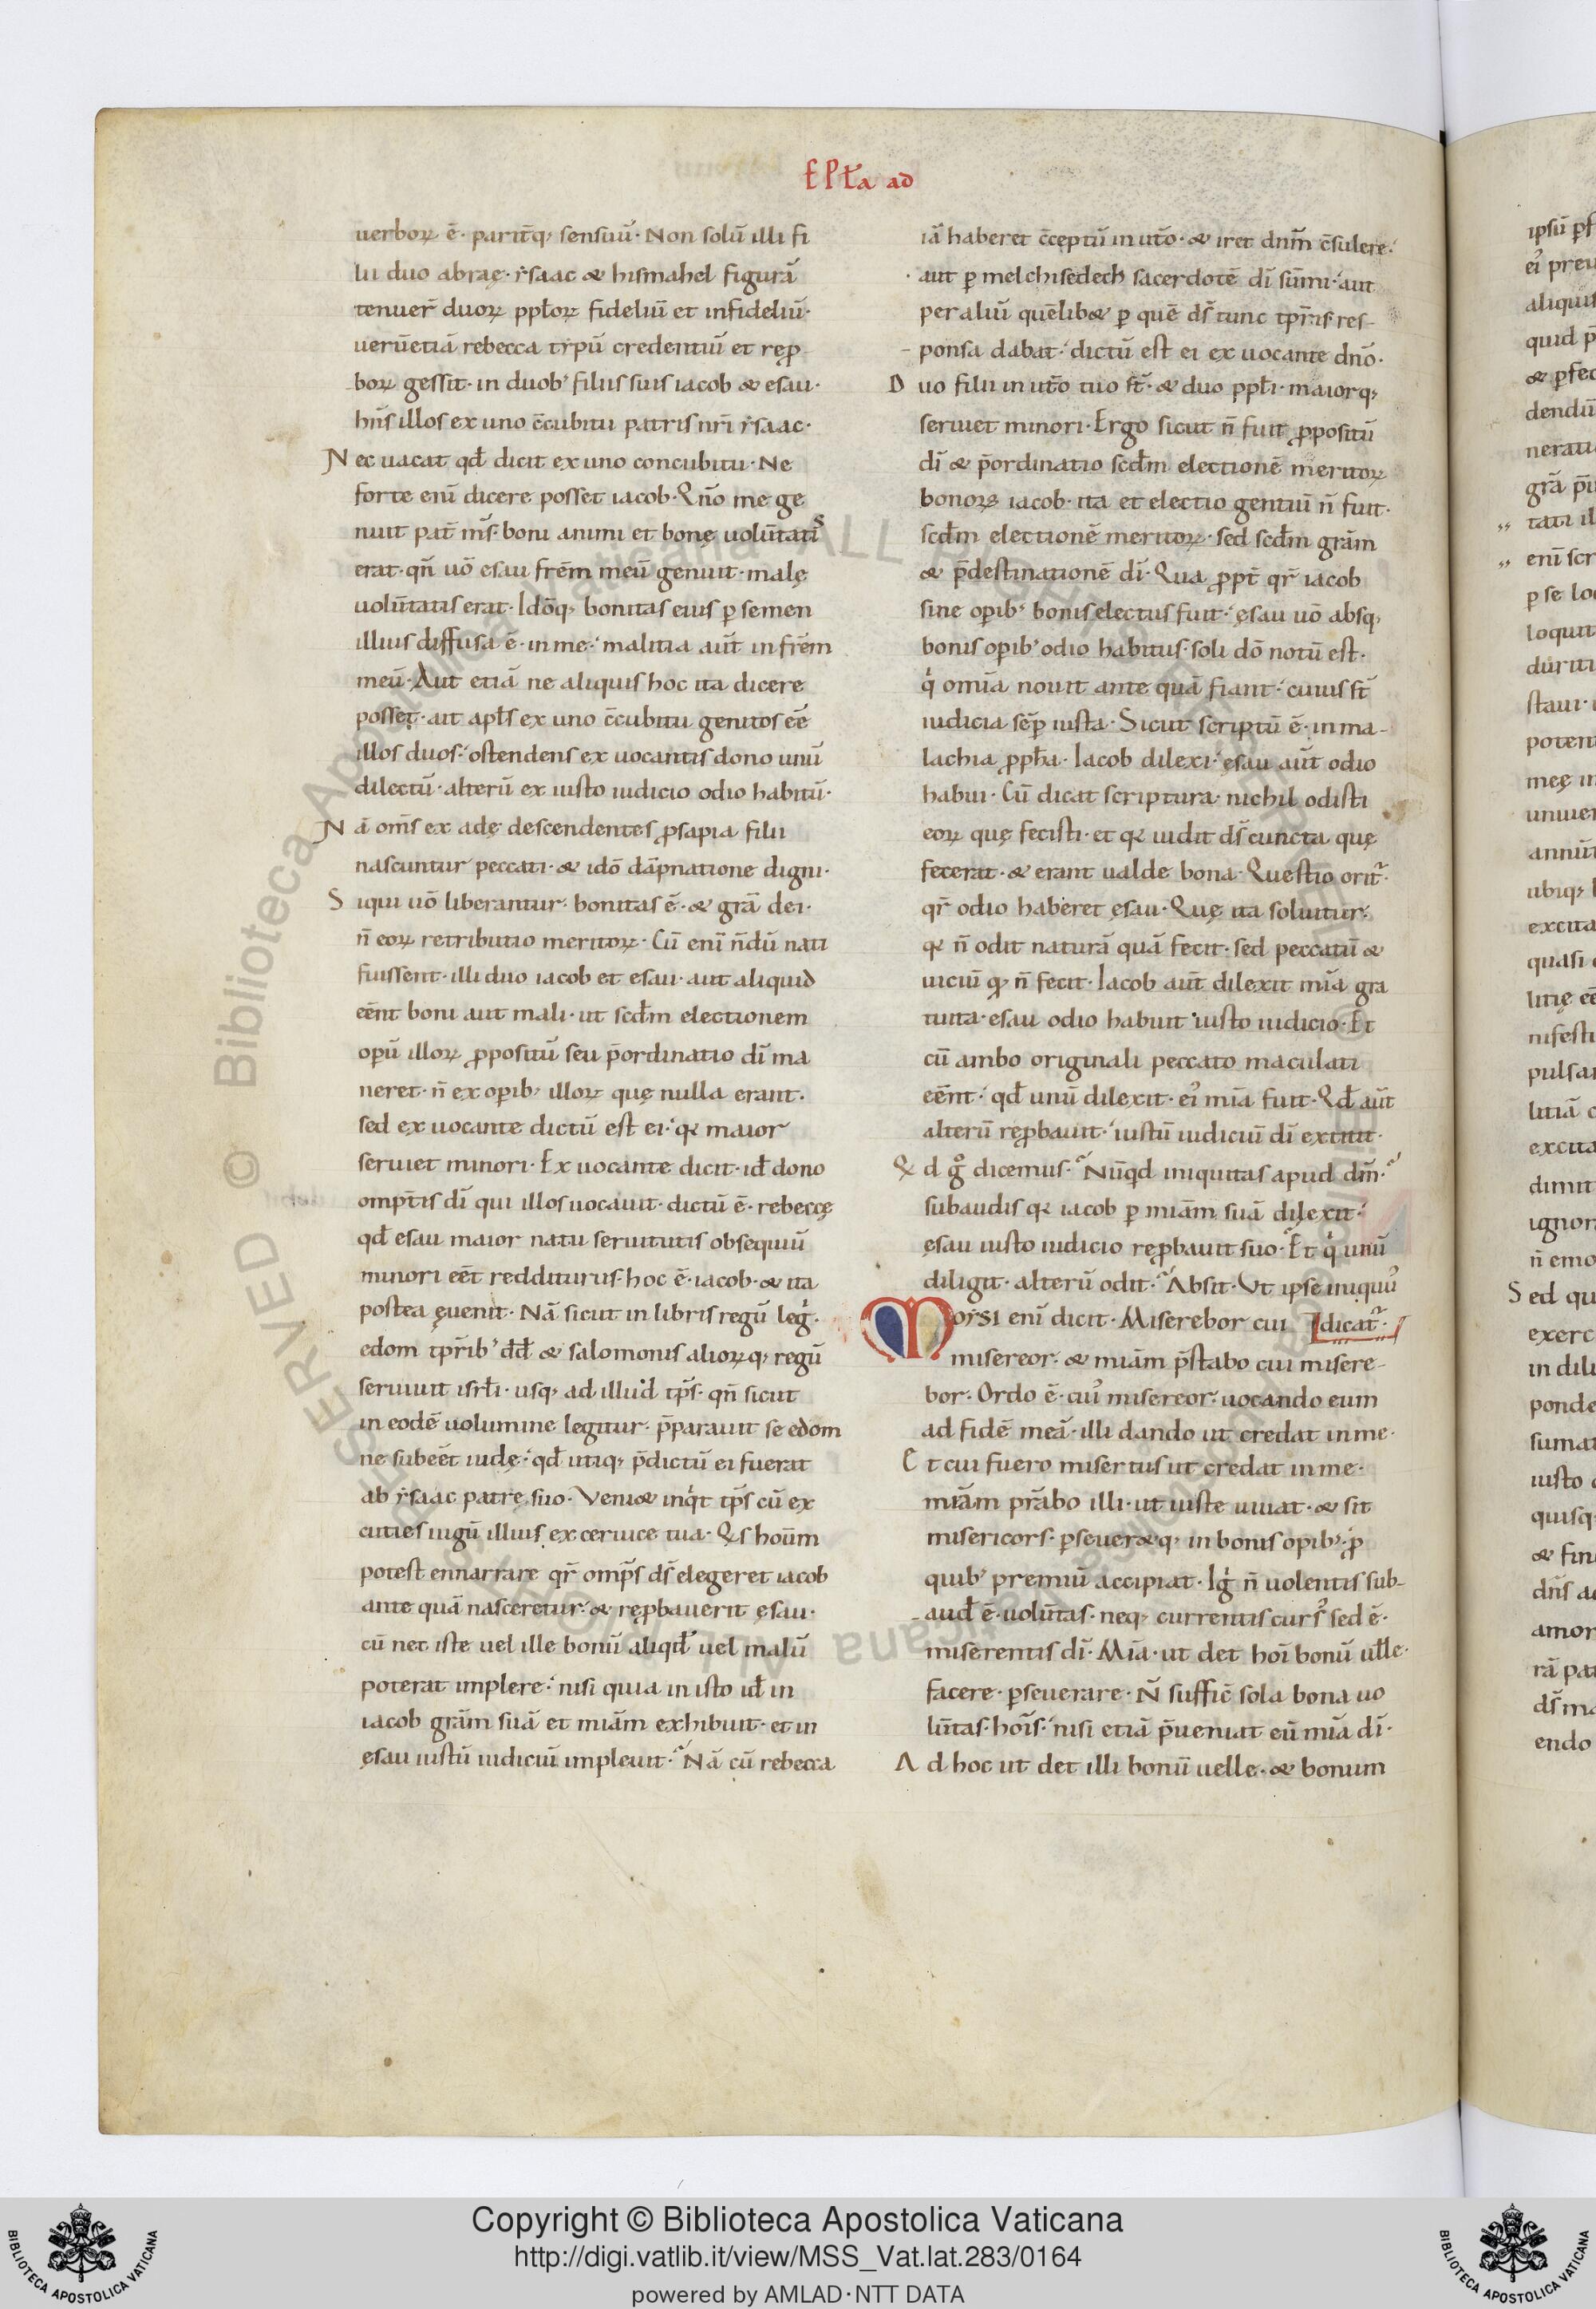 EPłа ad
uerboꝝ ē· parit̄q; sensuū· Non solū illi fi
lii duo abraę· ẏsaac & hismahel figurā
tenuer̄ duoꝝ ppłoꝝ fideliū et infideliū·
uerūetiā rebecca tẏpū credentiū et rep̱ro
boꝝ gessit· in duob; filiis suis iacob & esau·
hn̄s illos ex uno c̄cubitu patris nr̄i ẏsaac·
Nec uacat qđ dicit ex uno concubitu· Ne
forte enī dicere posset iacob· Qn̄o me ge
nuit pat̄ m̄s· boni animi et bonę uolūtatis
erat· qn̄ uō esau frēm meū genuit· malę
uolūtatis erat· Idōq; bonitas eius ꝑ semen
illius diffusa ē· in me· malitia aūt in frēm
meū· Aut etiā ne aliquis hoc ita dicere
posset· ait apłs ex uno c̄cubitu genitos eē
illos duos· ostendens ex uocantis dono unū
dilectū· alterū ex iusto iudicio odio habitū·
Nā om̄s ex adę descendentes ꝓsapia filii
nascuntur peccati· & idō dāpnatione digni·
Siqui uō liberantur· bonitas ē· & grā dei·
n̄ eoꝝ retributio meritoꝝ· Cū enī n̄dū nati
fuissent· illi duo iacob et esau· aut aliquid
eēnt boni aut mali· ut scđm electionem
opū illoꝝ ꝓpositū seu p̄ordinatio dī ma
neret· n̄ ex opib; illoꝝ quę nulla erant·
sed ex uocante dictū est ei· qꝛ maior
seruiet minori· Ex uocante dicit· iđ dono
omp̄tis dī qui illos uocauit· dictū ē· rebeccę
qđ esau maior natu seruitutis obsequiū
minori eēt redditurus· hoc ē· iacob· & ita
postea ęuenit· Nā sicut in libris regū leg̍·
edom tp̄rib; dđ & salomonis alioꝝq; regū
seruiuit isrłi· usq; ad illud tp̄s· qn̄ sicut
in eodē uolumine legitur· p̄parauit se edom
ne subeēt iudę· qđ utiq; p̄dictū ei fuerat
ab ẏsaac patre suo· Veni& inq̍t tp̄s cū ex
cuties iugū illius ex ceruice tua· Qs hoūm
potest ennarrare qr̄ omp̄s ds̄ elegeret iacob
ante quā nasceretur· & reꝓbauerit ęsau·
cū nec iste uel ille bonū aliqđ uel malū
poterat implere· nisi quia in isto iđ in
iacob grām suā et miām exhibuit· et in
ęsau iustū iudiciū impleuit· Nā cū rebecca
iā haberet c̄ceptū in utō· & iret dnm̄ c̄sulere·
aut ꝑ melchisedech sacerdotē dī sūmi· aut
per aliū quēlib& ꝑ quē ds̄ tunc tp̄ris res-
ponsa dabat· dictū est ei ex uocante dnō·
Duo filii in utō tuo st̄· & duo ppłi· maiorq;
seruiet minori· Ergo sicut n̄ fuit ꝓpositū
dī & p̄ordinatio scđm electionē meritoꝝ
bonoꝝ iacob· ita et electio gentiū n̄ fuit·
scđm electionē meritoꝝ· sed scđm grām
& p̄destinationē dī· Qua ꝓpt̄ qr̄ iacob
sine opib; bonis electus fuit· ęsau uō absq;
bonis opib; odio habitus· soli dō notū est·
q̍ omīa nouit ante quā fiant· cuius st̄
iudicia sēp̱ iusta· Sicut scriptū ē· in ma-
lachia ꝓpħa· Iacob dilexi· ęsau aūt odio
habui· Cū dicat scriptura· nichil odisti
eoꝝ quę fecisti· et qꝛ uidit ds̄ cuncta quę
fecerat· & erant ualde bona· Questio orit̄·
qr̄ odio haberet ęsau· Quę ita soluitur·
qꝛ n̄ odit naturā quā fecit· sed peccatū &
uiciū qđ n̄ fecit· Iacob aūt dilexit mīa gra
tuita· esau odio habuit iusto iudicio· Et
cū ambo originali peccato maculati
eēnt· qđ unū dilexit· ei᾽ mīa fuit· Qđ aūt
alterū reꝓbauit· iustū iudiciū dī extitit·
Qd g̊ dicemus· Nūqd iniquitas apud dm̄·
subaudis qꝛ iacob ꝑ miām suā dilexit·
ęsau iusto iudicio reꝓbauit suo· Et q̍ unū
diligit· alterū odit· Absit· Vt ipse iniquus
dicat̄·
Moẏsi enī dicit· Miserebor cui
misereor· & miām p̄stabo cui misere-
bor· Ordo ē· cui᾽ misereor· uocando eum
ad fidē meā· illi dando ut credat in me·
Et cui fuero misertus ut credat in me·
miām prābo illi· ut iuste uiuat· & sit
misericors· ꝑseuer&q; in bonis opib;· ꝓ
quib; premiū accipiat· Ig̍ n̄ uolentis sub-
auđ ē· uolūtas· neq; currentis curs᾽ sed ē·
miserentis dī· Mīa· ut det hoī bonū ułle·
facere· ꝑseuerare· N̄ suffic̄ sola bona uo
lūtas· hoīs· nisi etiā p̄ueniat eū mīa dī·
Ad hoc ut det illi bonū uelle· & bonum
Copyright © Biblioteca Apostolica Vaticana
http://digi.vatlib.it/view/MSS_Vat.lat.283/0164
powered by AMLAD·NTT DATA
BIBLIOTECA APOSTOLICA VATICANA
BIBLIOTECA APOSTOLICA VATICANA